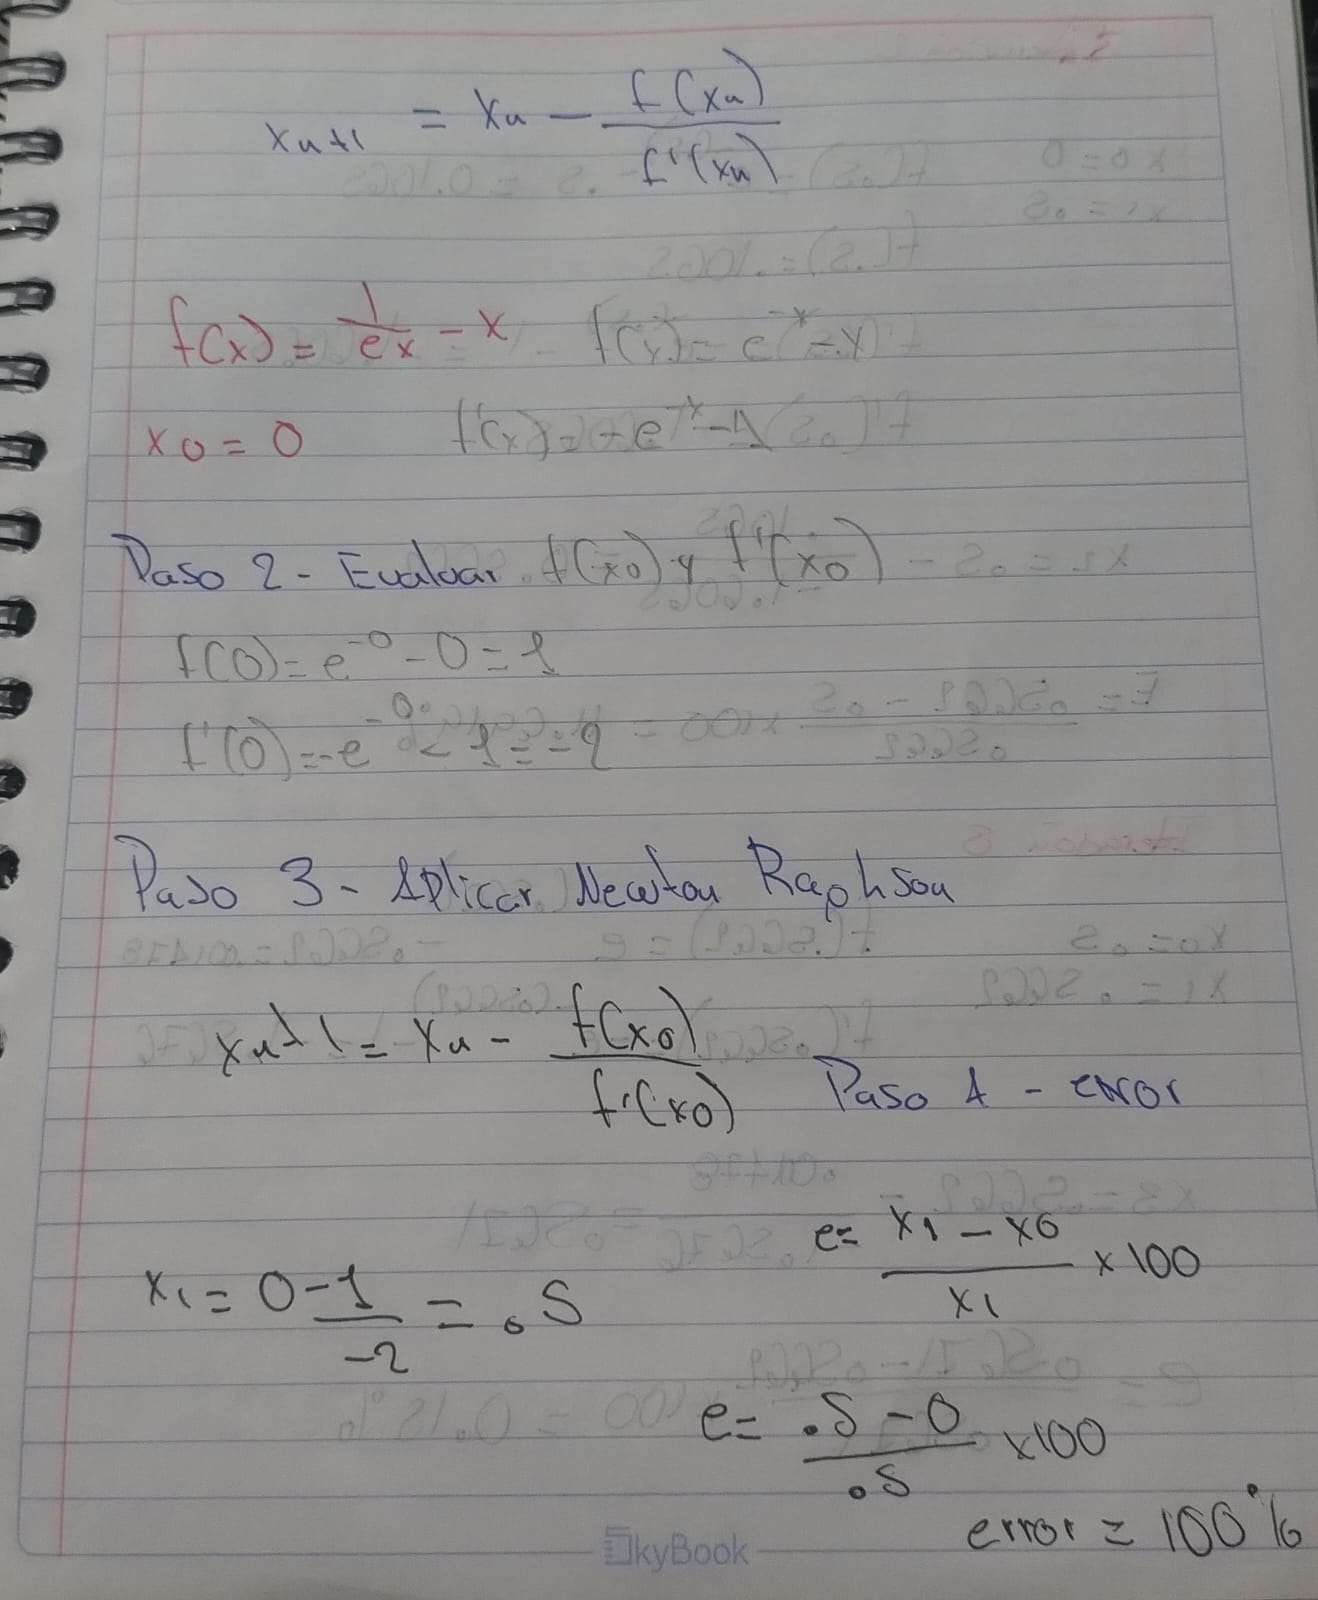 xn+1 = xn - f(xn) / f'(xn)
f(x) = 1/e^x - x   f(x) = e^-x - x
x0 = 0   f'(x) = -e^-x - 1
Paso 2 - Evaluar f(x0) y f'(x0)
f(0) = e^-0 - 0 = 1
f'(0) = -e^-0 - 1 = -2
Paso 3 - Aplicar Newton Raphson
xn+1 = xn - f(x0) / f'(x0)
Paso 4 - error
e = x1 - x0 / x1 x 100
x1 = 0 - 1 / -2 = .5
e = .5 - 0 / .5 x100
error = 100%
SkyBook